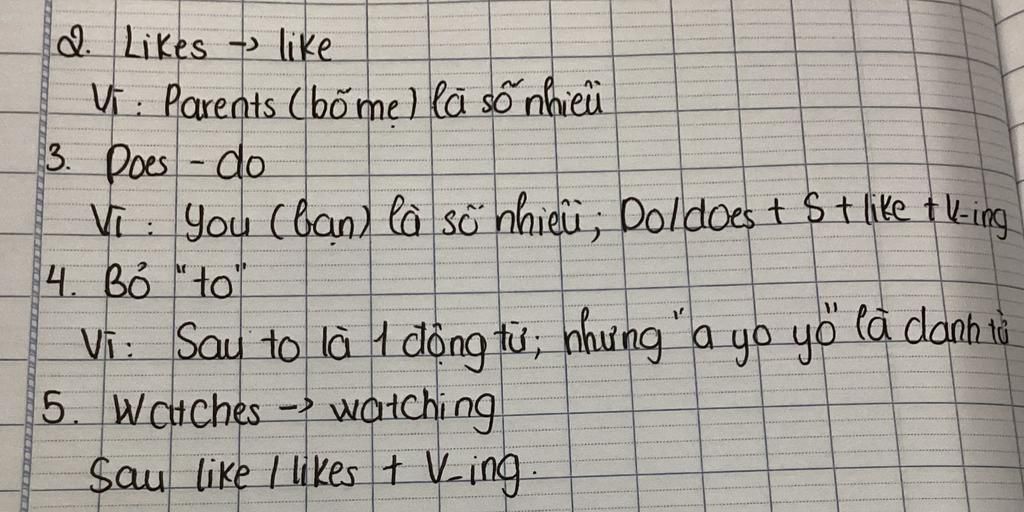 2. Likes → like
Vì: Parents (bố mẹ) là số nhiều
3. Does - do
Vì: you (bạn) là số nhiều; Do/does + S + like + V-ing
4. Bỏ "to"
Vì: Sau to là 1 động từ; nhưng "a yo yo" là danh từ
5. Watches → watching
Sau like / likes + V-ing.